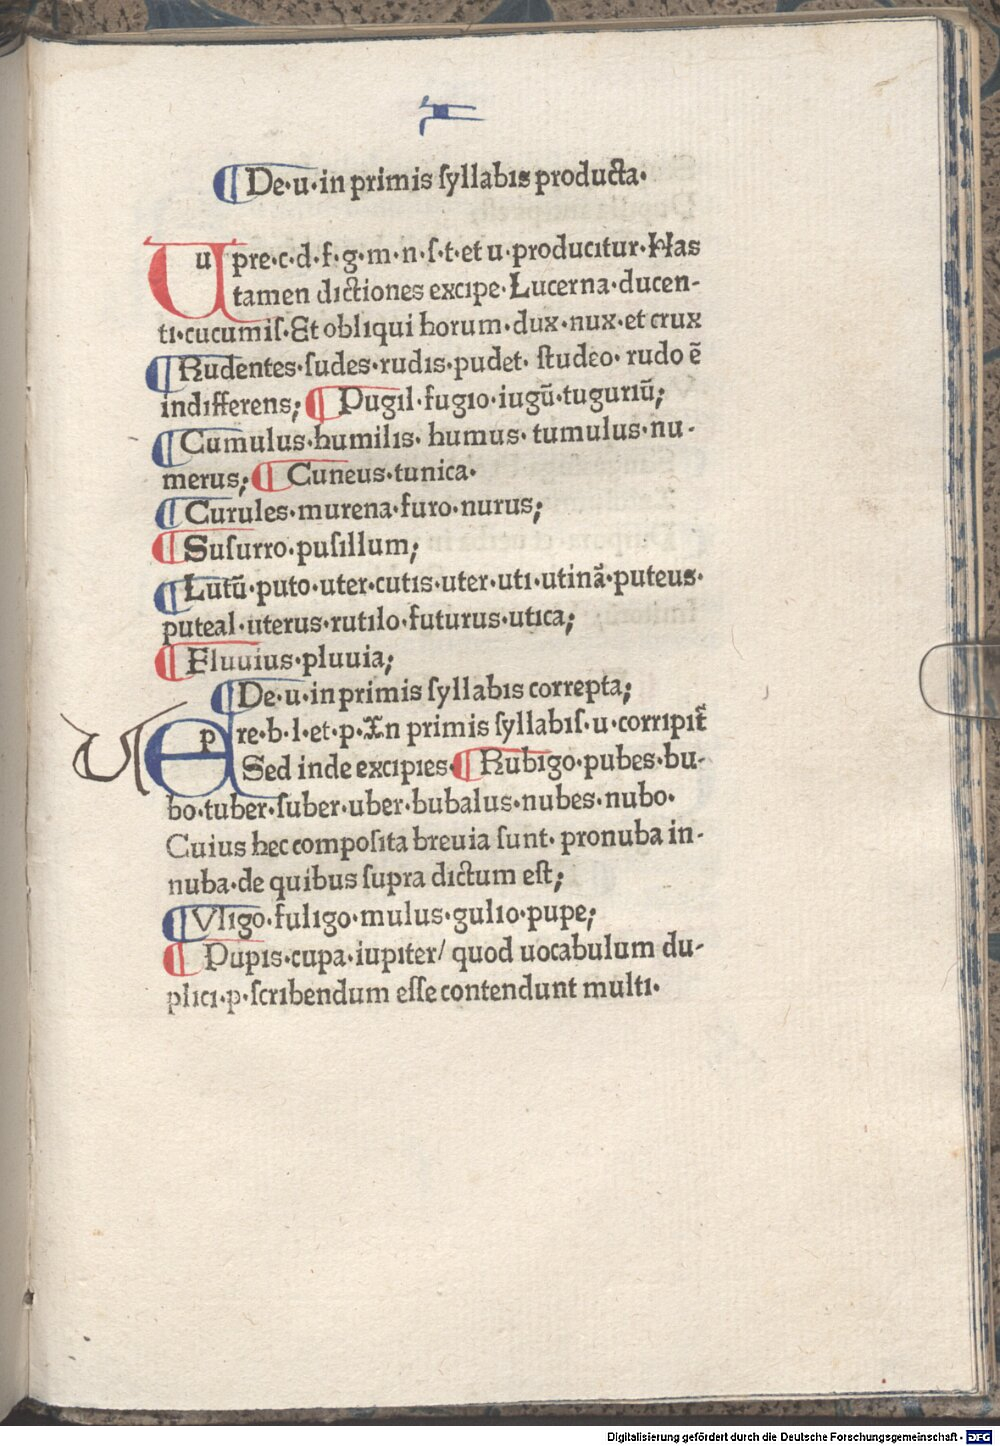 ¶ De·u·in primis ſyllabis producta·
U u pre·c·d·f·g·m·n·ſ·t·et u·producitur·Has
tamen dictiones excipe·Lucerna·ducen-
ti·cucumiſ·Et obliqui horum·dux·nux·et crux
¶ Rudentes·ſudes·rudis·pudet· ſtudeo· rudo ē
indifferens; ¶ Pugil·fugio·iugū·tuguriū;
¶ Cumulus·humilis· humus· tumulus·nu-
merus; ¶ Cuneus·tunica·
¶ Curules·murena·furo·nurus;
¶ Suſurro·puſillum;
¶ Lutū·puto·uter·cutis·uter·uti·utinā·puteus·
puteal·uterus·rutilo·futurus·utica;
¶ Fluuius·pluuia;
¶ De·u·in primis ſyllabis correpta;
p re·b·l·et·p·In primis ſyllabiſ·u·corripit̄
Sed inde excipies· ¶ Rubigo·pubes·bu-
bo·tuber·ſuber·uber·bubalus·nubes·nubo·
Cuius hec compoſita breuia ſunt· pronuba in-
nuba·de quibus ſupra dictum eſt;
¶ Vligo·fuligo·mulus·gulio·pupe;
¶ Pupis·cupa·iupiter/ quod uocabulum du-
plici·p·ſcribendum eſſe contendunt multi·
Digitalisierung gefördert durch die Deutsche Forschungsgemeinschaft - DFG